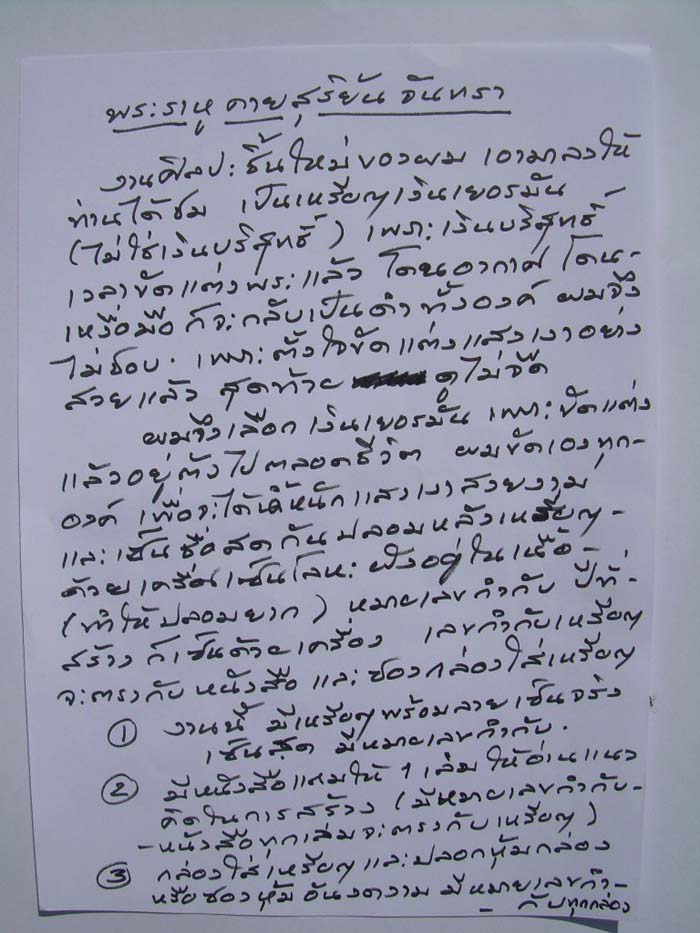 พระราหู คายสุริยัน จันทรา
งานศิลปะชิ้นใหม่ของผม เอามาลงให้
ท่านได้ชม เป็นเหรียญเงินเยอรมัน
(ไม่ใช่เงินบริสุทธิ์) เพราะเงินบริสุทธิ์
เวลาขัดแต่งพระแล้ว โดนอากาศ โดน-
เหงื่อมือ ก็จะกลับเป็นดำทั้งองค์ ผมจึง
ไม่ชอบ. เพราะตั้งใจขัดแต่งแสงเงาอย่าง
สวยแล้ว สุดท้าย ดูไม่จืด
ผมจึงเลือกเงินเยอรมัน เพราะขัดแต่ง
แล้วอยู่ยังไปตลอดชีวิต ผมขัดเองทุก-
องค์ เพื่อจะได้ น้ำหนักแสงเงาสวยงาม
และเซ็นชื่อสดกันปลอมหลังเหรียญ-
ด้วยเครื่องเซ็นโลหะ ฝังอยู่ในเนื้อ-
(ทำให้ปลอมยาก) หมายเลขกำกับ ปีที่-
สร้าง ก็เซ็นด้วยเครื่อง เลขกำกับเหรียญ
จะตรงกับหนังสือ และซองกล่องใส่เหรียญ
① งานนี้ มีเหรียญพร้อมลายเซ็นจริง
เซ็นสด มีหมายเลขกำกับ.
② มีหนังสือแถมให้ 1 เล่มให้อ่านแนว
คิดในการสร้าง (มีหมายเลขกำกับ-
-หนังสือทุกเล่มจะตรงกับเหรียญ)
③ กล่องใส่เหรียญและปลอกหุ้มกล่อง
หรือซองหุ้ม อันงดงาม มีหมายเลขกำ-
- กับทุกกล่อง